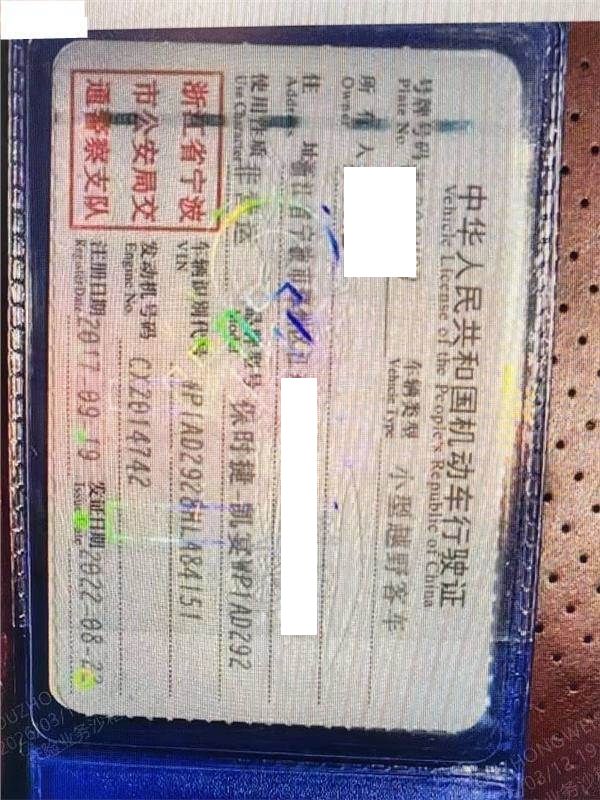 中华人民共和国机动车行驶证
Vehicle License of the People's Republic of China
号牌号码
Plate No.
车辆类型 小型越野客车
Vehicle Type
所有人
Owner
住 址 浙江省宁波市
Address
使用性质 非营运
Use Character
品牌型号 保时捷-凯宴WP1AD292
Model
车辆识别代号 WP1AD2926HLA84151
VIN
发动机号码 CXZ014742
Engine No.
注册日期 2017-09-19
Register Date
发证日期 2022-08-22
Issue Date
浙江省宁波
市公安局交
通警察支队